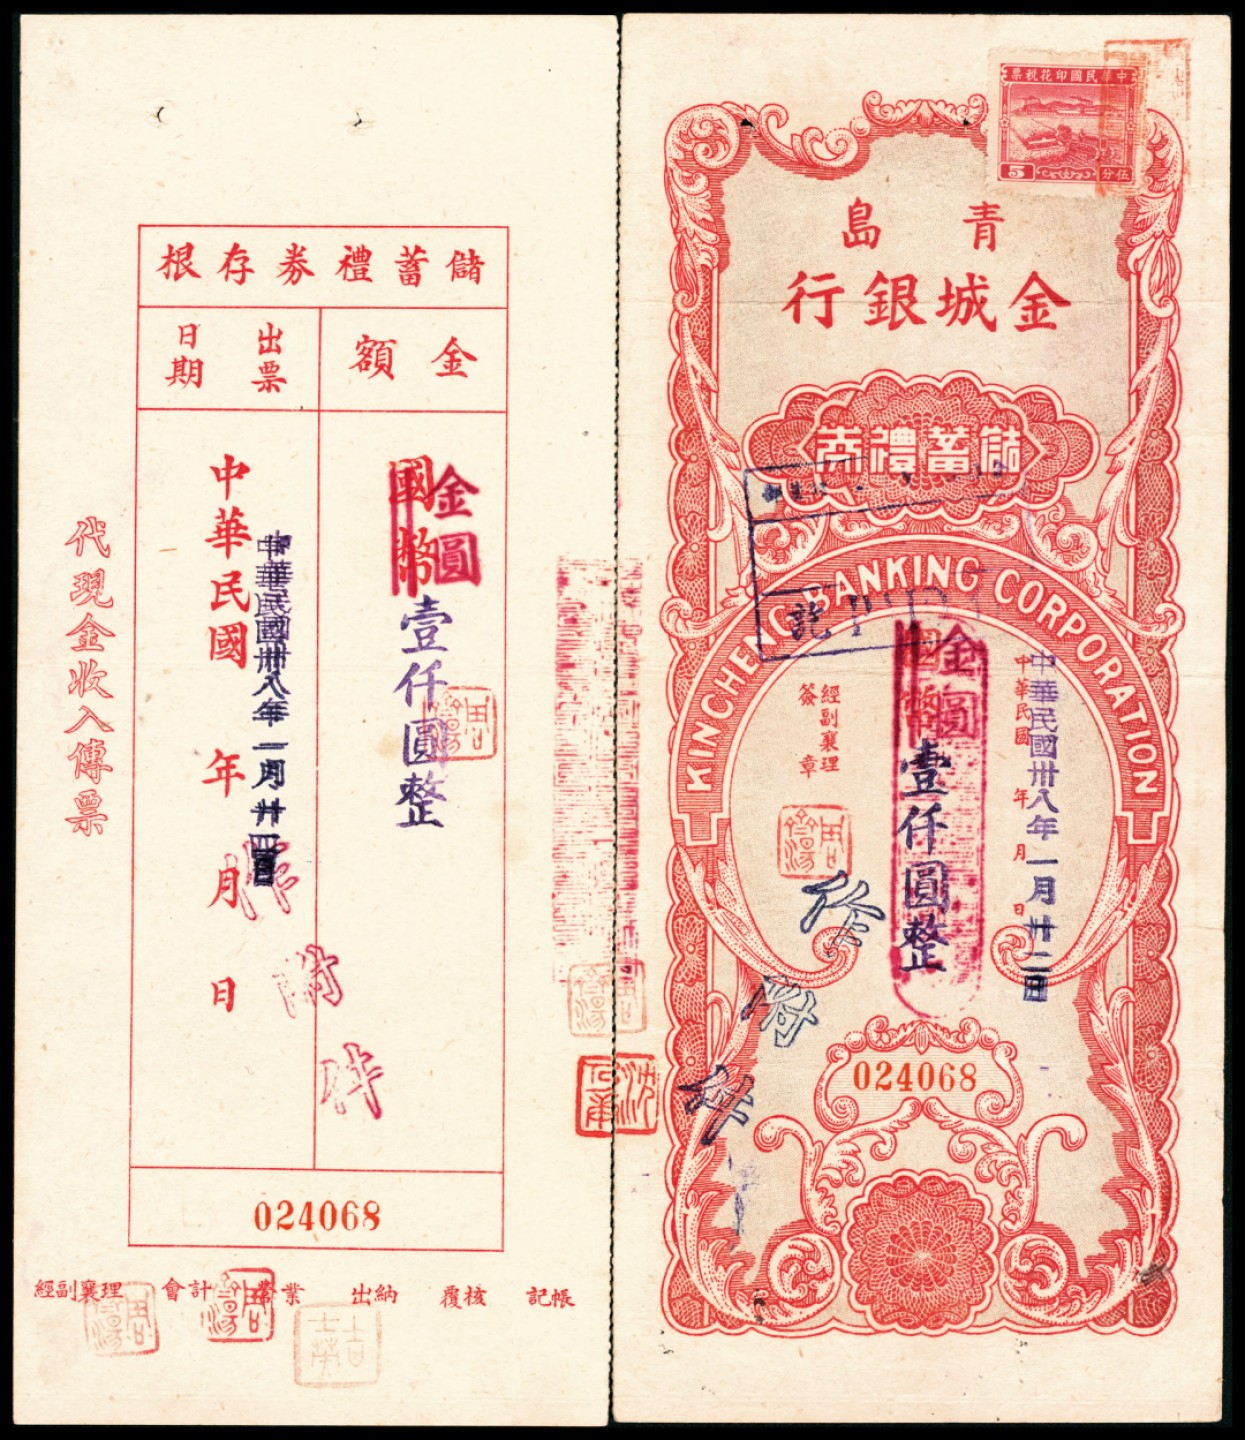 儲蓄禮券存根
金額
出票日期
金圓
國幣
壹仟圓整
中華民國 年 月 日
中華民國卅八年一月廿四日
代現金收入傳票
024068
經副襄理 會計 營業 出納 覆核 記帳
中華民國印花稅票
5
伍分
青島
金城銀行
儲蓄禮券
KINCHENG BANKING CORPORATION
訖
中華民國 年 月 日
中華民國卅八年一月廿二日
金圓
國幣
壹仟圓整
經副襄理簽章
024068